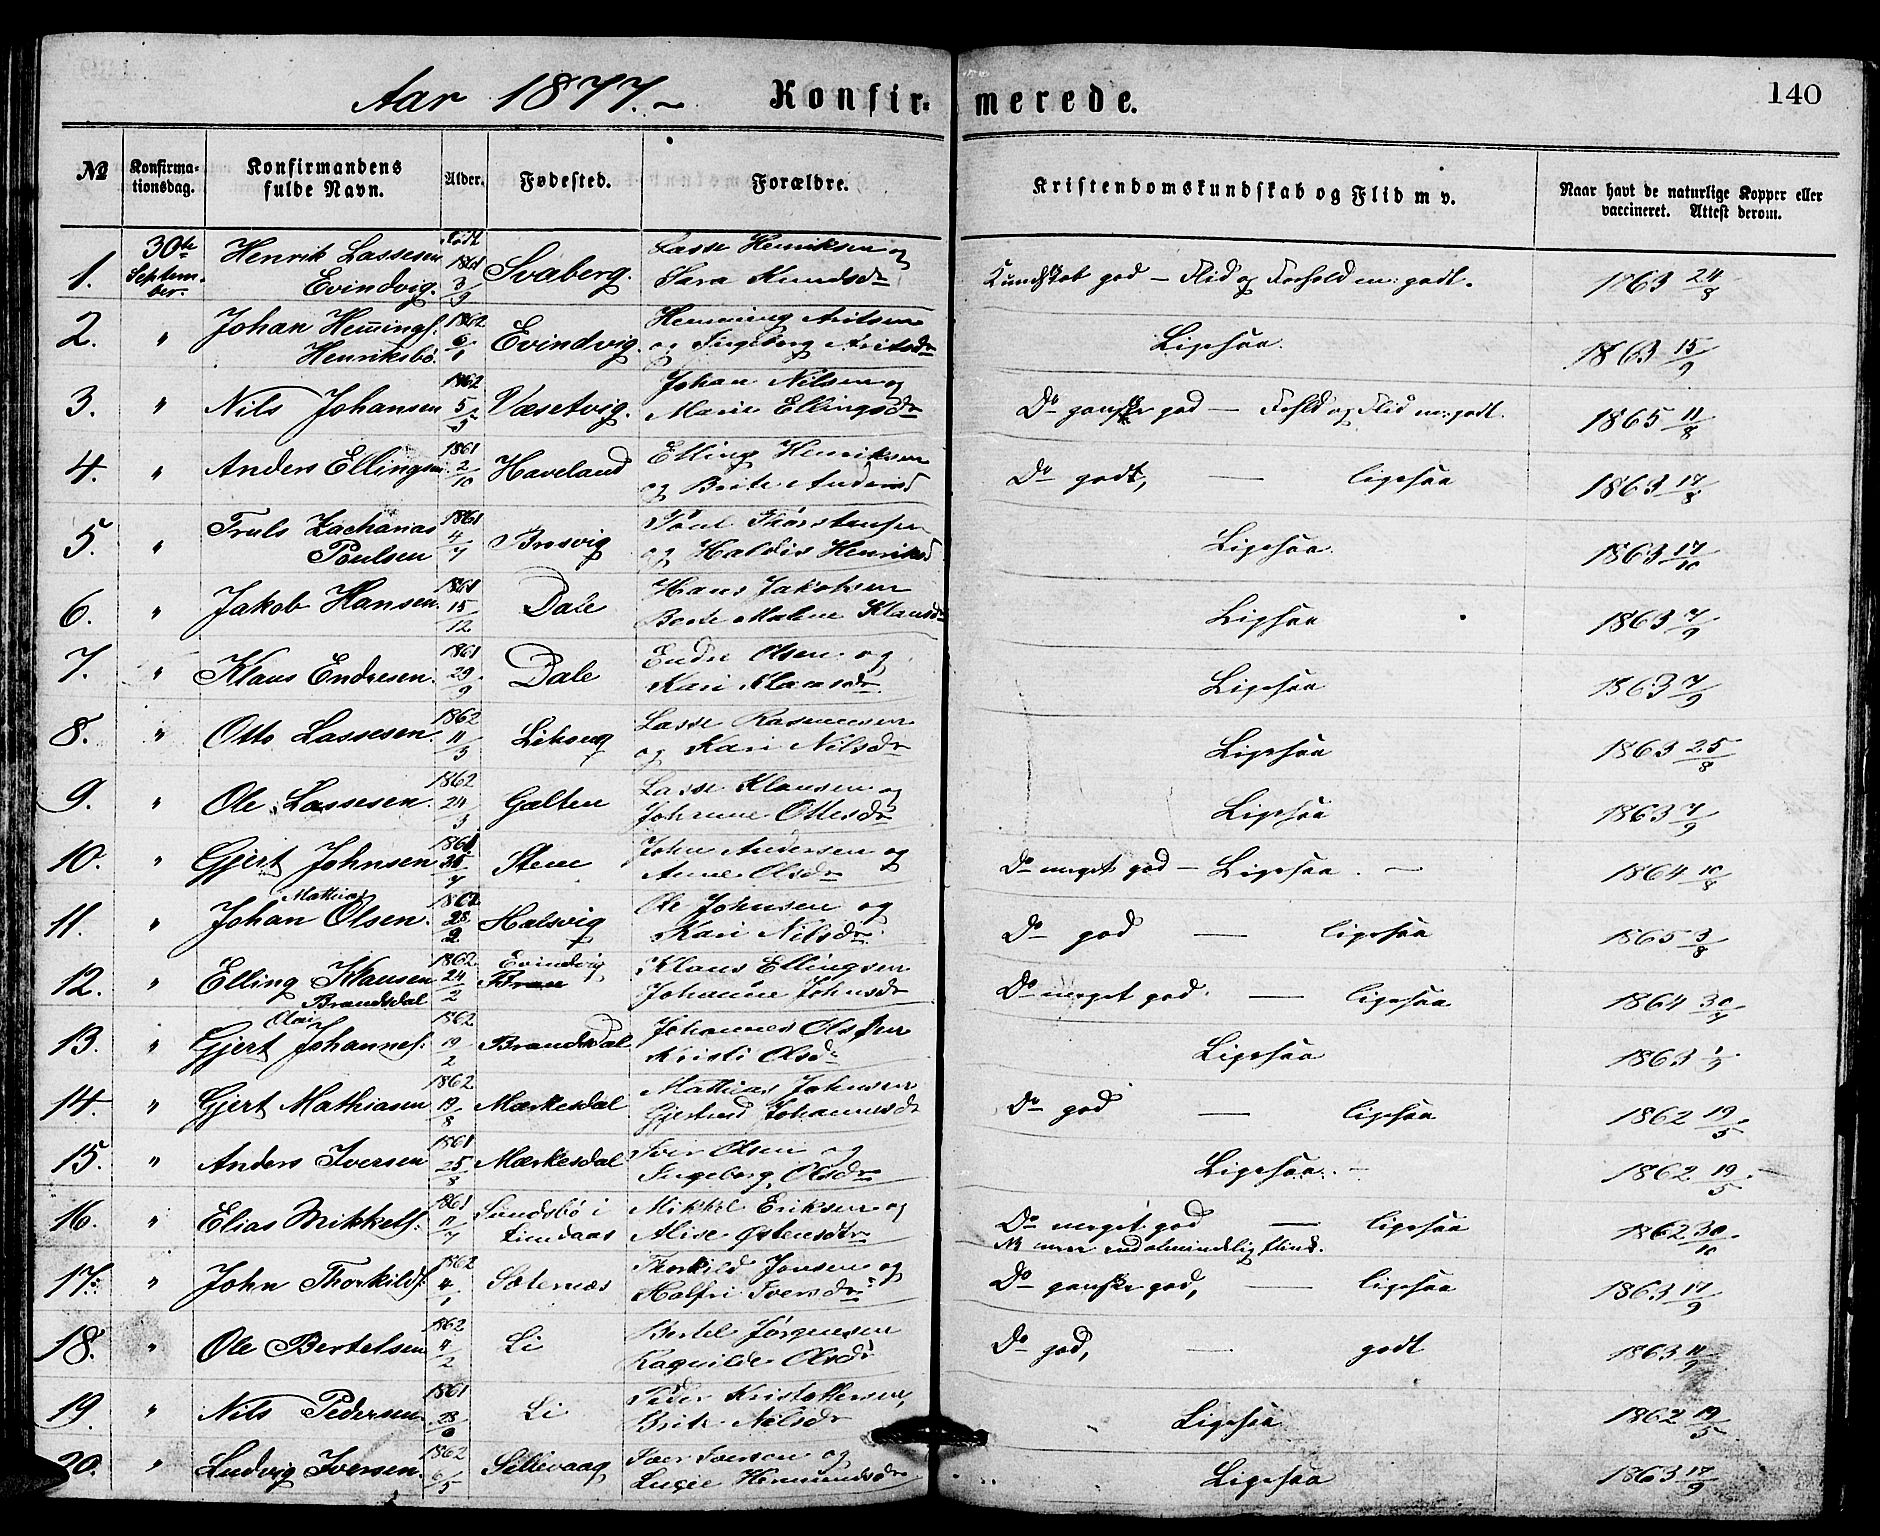 Aar 1877. Konfirmerede. 140
№ Konfirmationsdag. Konfirmandens fulde Navn. Alder. Fødested. Forældre. Kristendomskundskab og Flid m v. Naar havt de naturlige Kopper eller vaccineret. Attest derom.
1. 30te September. Henrik Lassesen Evindvig. Født 1861 3/9 Svaberg. Lasse Henriksen og Sara Knudsdr Kundskab god — Flid og Forhold m: godt. 1863 24/8
2. " Johan Hemmingf. Henriksbø. 1862 6/1 Evindvig. Hemming Aritsen og Ingeborg Aritsdr Ligesaa. 1863 15/9
3. " Nils Johansen 1862 5/5 Væsetvig. Johan Nilsen og Marie Ellingsdr Do ganske god — Forhld og Flid m: godt. 1865 11/8
4. " Anders Ellingsen 1861 2/10 Haveland Elling Henriksen og Brite Andersd Do godt, — ligesaa 1863 17/8
5. " Truls Zacharias Poulsen 1861 4/7 Brosvig Poul Thorstensen og Haldis Henriksd Ligesaa. 1863 17/10
6. " Jakob Hansen 1861 15/12 Dale Hans Jakobsen Brite Malene Klausdr Ligesaa 1863 7/9
7. " Klaus Endresen 1861 29/9 Dale Endre Olsen og Kari Klausdr Ligesaa 1863 7/9
8. " Otto Lassesen. 1862 11/3 Lasse Rasmussen og Kari Nilsdr Ligesaa 1863 25/8
9. " Ole Lassesen. 1862 24/3 Galten Lasse Klausen og Johanne Ottesdr Ligesaa 1863 7/9
10. " Gjert Johnsen 1861 /7 Stene John Andersen og Anne Olsdr Do meget god — Ligesaa. — 1864 10/8
11. " Johan Mathias Olsen. 1862 28/2 Halsvig Ole Johnsen og Kari Nilsdr Do god — ligesaa 1865 3/8
12. " Elling Klausen Brandsdal 1862 24/2 Evindvig Klaus Ellingsen Johanne Johnsdr Do meget god — ligesaa 1864 30/7
13. " Gjert Olai Johannesf. 1862 19/2 Brandsdal Johannes Olsen Kristi Olsdr Ligesaa 1863 1/9
14. " Gjert Mathiasen 1862 19/8 Mærkesdal Mathias Johnsen Gjertrud Johannesdr Do god — ligesaa 1862 19/5
15. " Anders Iversen 1861 25/8 Mærkesdal Iver Olsen og Ingeborg Olsdr Ligesaa. — 1862 19/5
16. " Elias Mikkelf. 1861 11/7 Sundsbø i Lindaas Mikkel Eriksen og Alise Østensdtr Do meget god — ligesaa NB mere end almindelig flink. 1862 30/10
17. " John Thorkildf. 1862 4/1 Sæternæs Thorkild Jonsen og Halfri Iversdr Do ganske god, — ligesaa 1863 17/9
18. " Ole Bertelsen 1862 4/2 Li Bertel Jørgensen Ragnilde Olsdr Do god, — godt 1863 11/9
19. " Nils Pedersen 1861 28/9 Li Peder Kristoffersen, Brite Nilsdr Ligesaa 1862 19/5
20. " Ludvig Iversen. 1862 6/5 Sellevaag Iver Iversen og Lucie Hermundsdr Ligesaa 1863 17/9